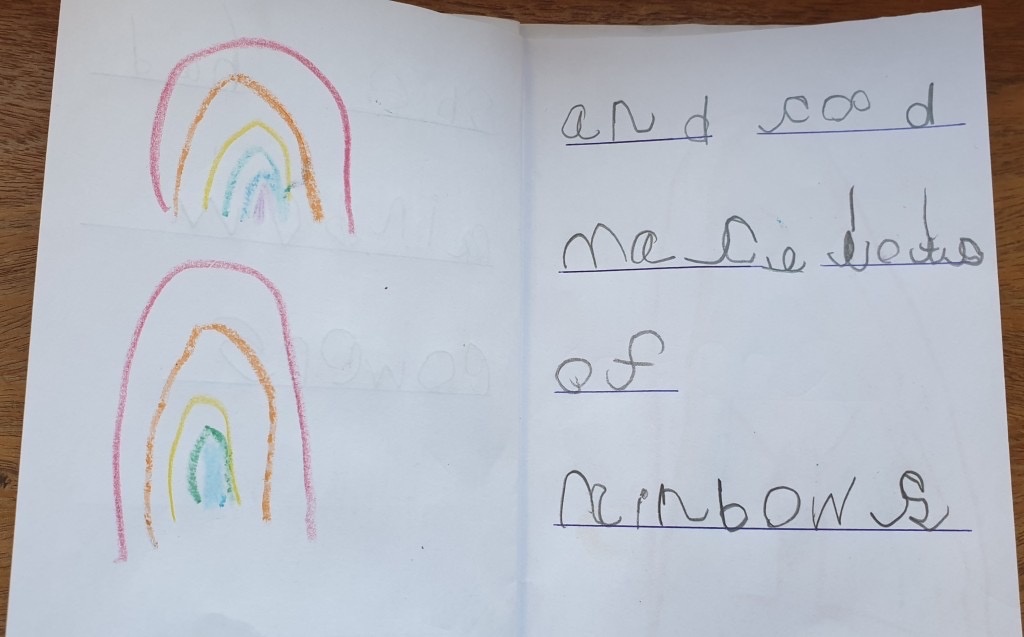 and cood
make lots
of
rainbows